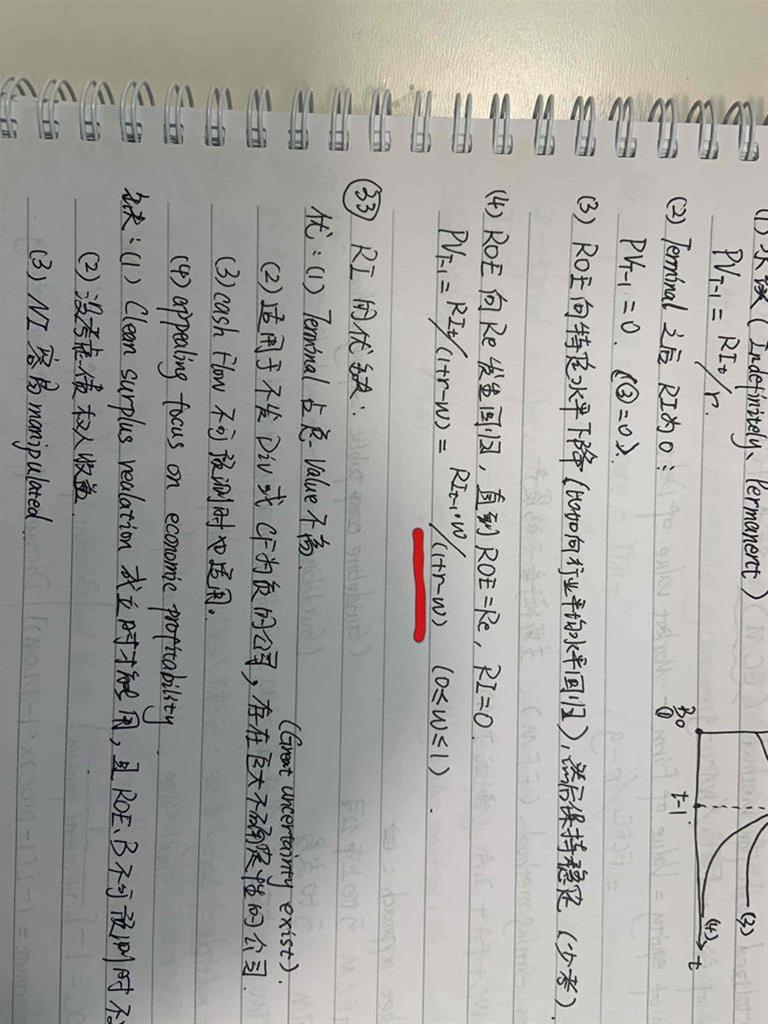 (1) 永续 (Indefinitely、Permanent)
PV_{T-1} = RI_t/r.
(2) Terminal 之后 RI为0:
PV_{T-1} = 0. (②=0).
(3) ROE向特定水平下降 (比如向行业平均水平回归), 然后保持稳定 (少考).
(4) ROE向Re发生回归, 直到ROE=Re, RI=0.
PV_{T-1} = RI_t/(1+r-w) = RI_{t-1}·w/(1+r-w) (0≤w≤1).
t-1
(3)
(4)
t
㉝ RI的优缺:
优: (1) Terminal占总Value不高.
(Great uncertainty exist).
(2) 适用于不发Div或CF为负的公司, 存在巨大不确定性的公司.
(3) cash flow不可预测时也适用。
(4) appealing focus on economic profitability
缺: (1) Clean surplus realation 成立时才能用, 且ROE、B不可预测时不
(2) 没考虑债权人收益
(3) NI容易manipulated